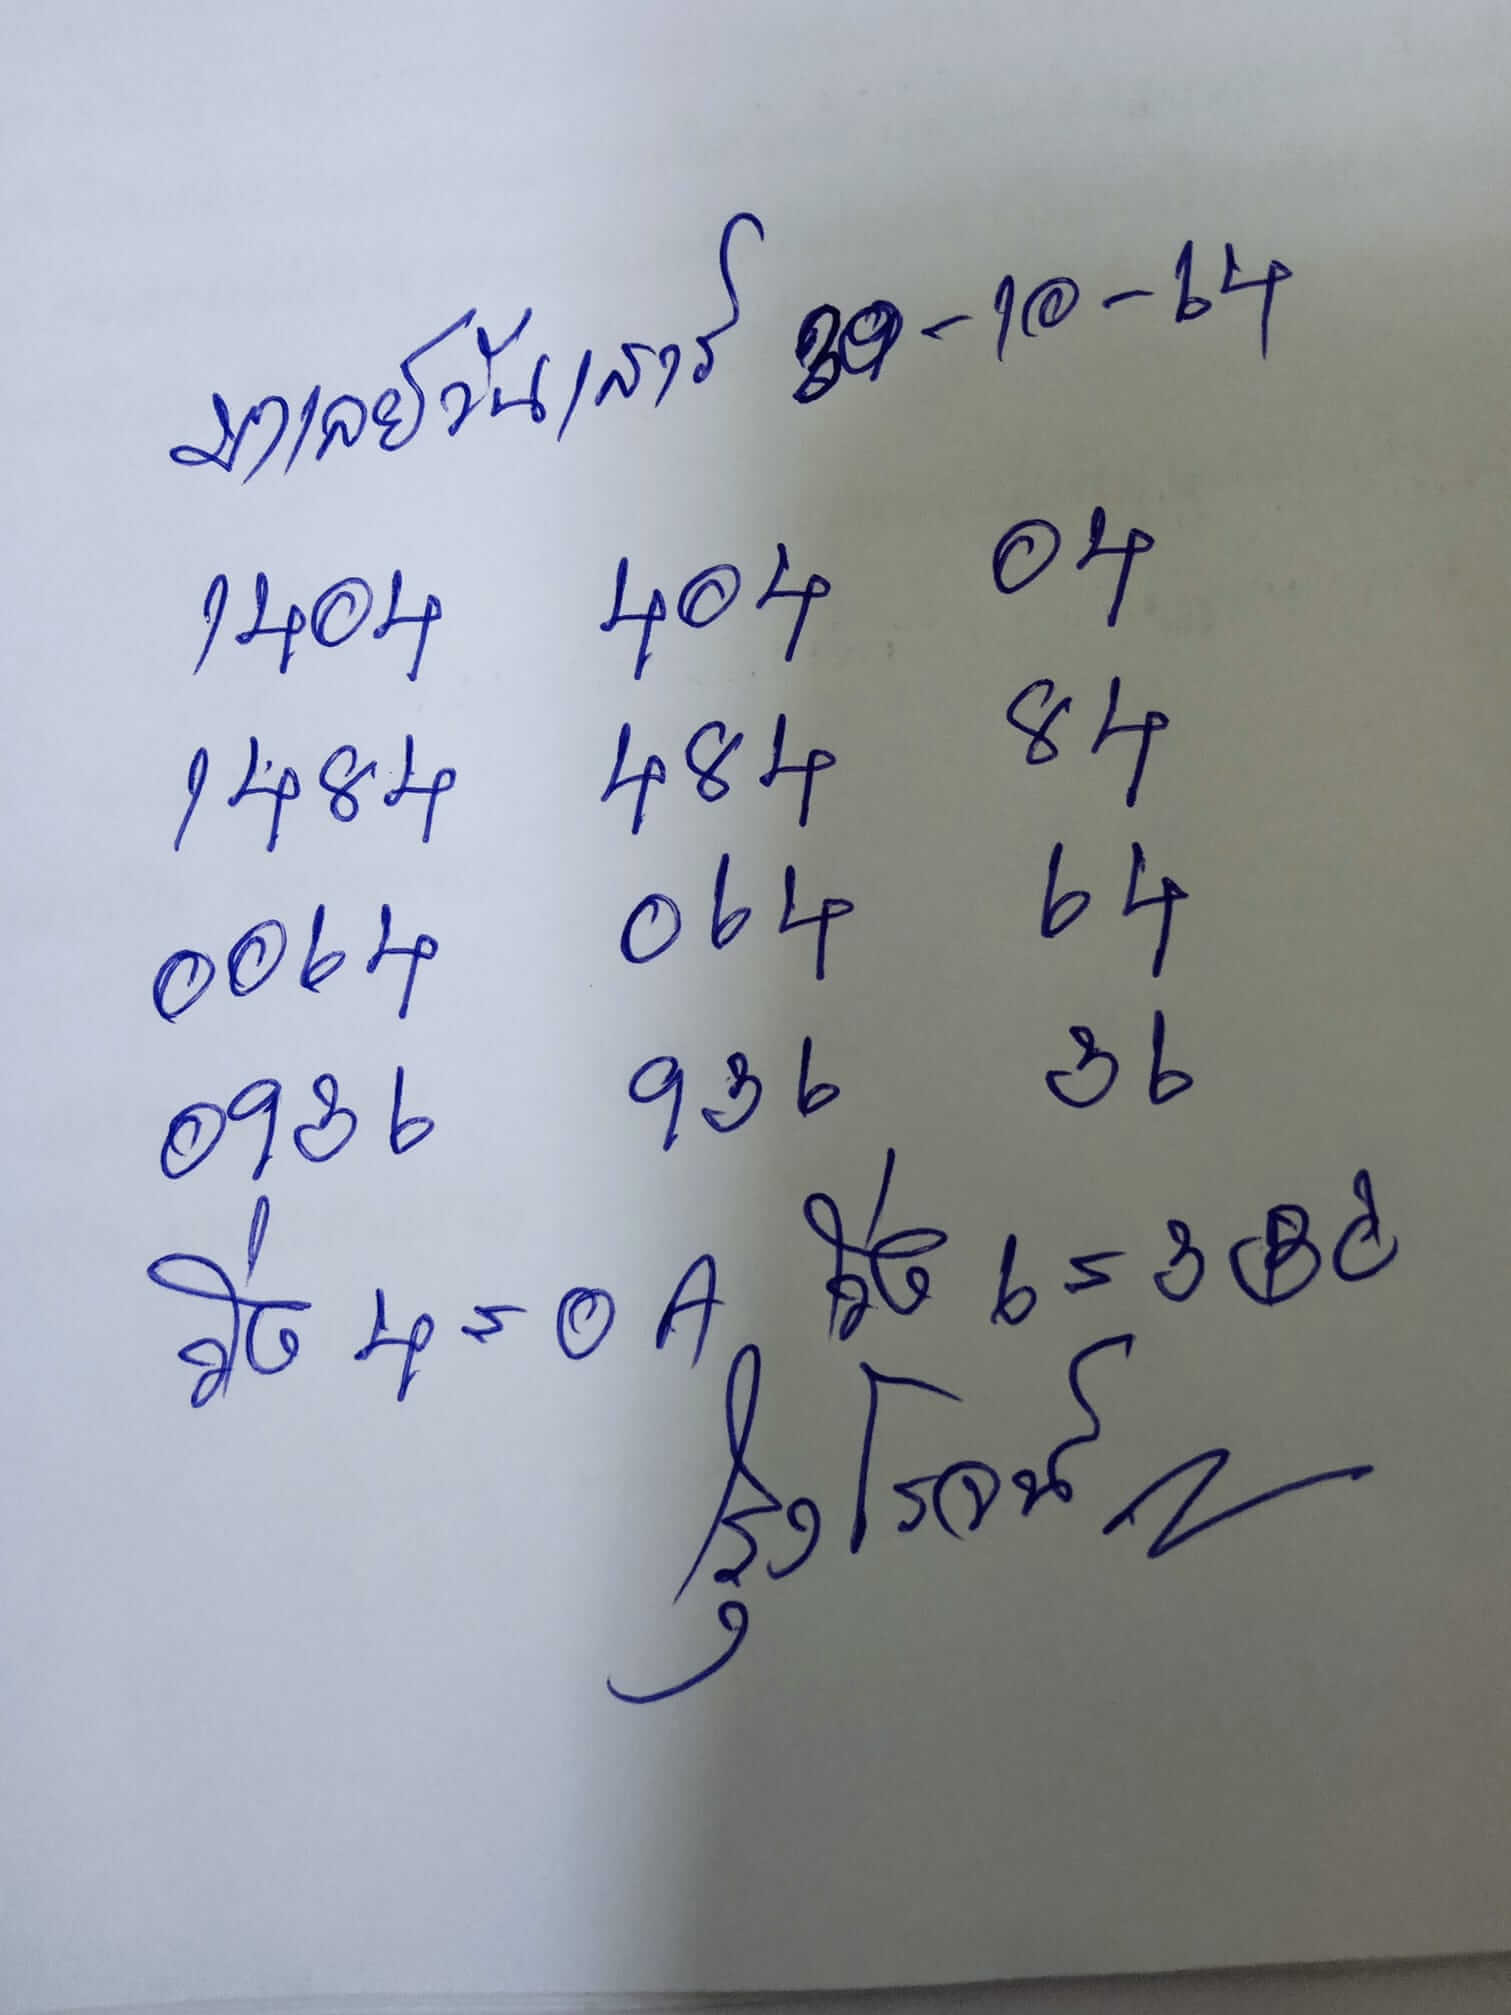 มาเลย์วันเสาร์ 30-10-64
1404 404 04
1484 484 84
0064 064 64
0936 936 36
วิ่ง 4 = 0 A วิ่ง 6 = 3
รุ่งโรจน์